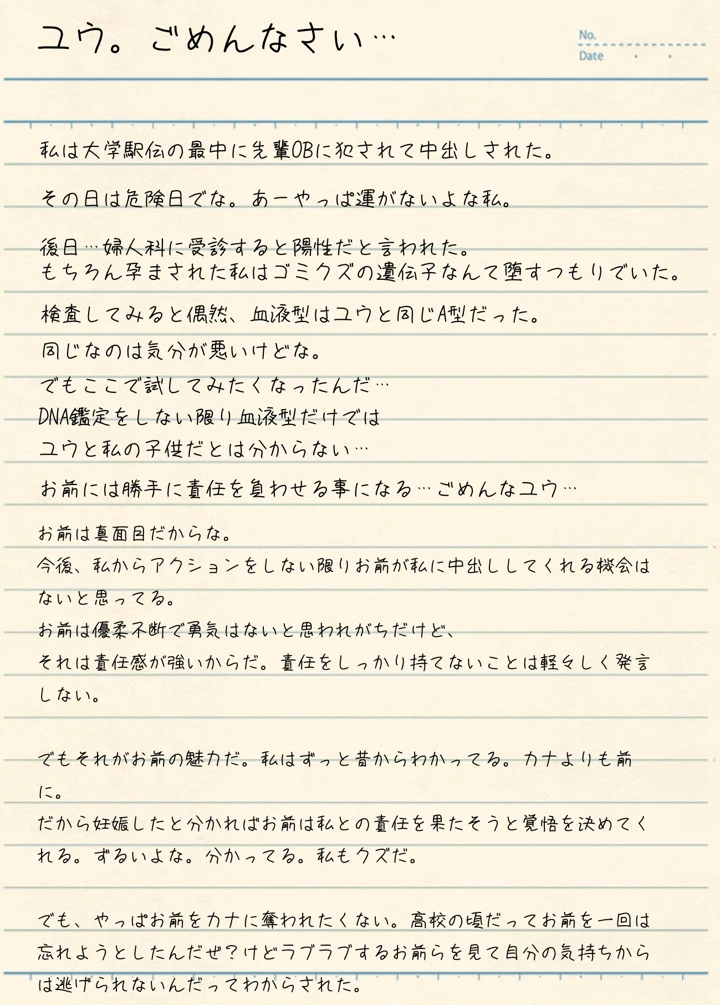 ユウ。ごめんなさい…
No.
Date
私は大学駅伝の最中に先輩OBに犯されて中出しされた。
その日は危険日でな。あーやっぱ運がないよな私。
後日…婦人科に受診すると陽性だと言われた。
もちろん孕まされた私はゴミクズの遺伝子なんて堕すつもりでいた。
検査してみると偶然、血液型はユウと同じA型だった。
同じなのは気分が悪いけどな。
でもここで試してみたくなったんだ…
DNA鑑定をしない限り血液型だけでは
ユウと私の子供だとは分からない…
お前には勝手に責任を負わせる事になる…ごめんなユウ…
お前は真面目だからな。
今後、私からアクションをしない限りお前が私に中出ししてくれる機会は
ないと思ってる。
お前は優柔不断で勇気はないと思われがちだけど、
それは責任感が強いからだ。責任をしっかり持てないことは軽々しく発言
しない。
でもそれがお前の魅力だ。私はずっと昔からわかってる。カナよりも前
に。
だから妊娠したと分かればお前は私との責任を果たそうと覚悟を決めてく
れる。ずるいよな。分かってる。私もクズだ。
でも、やっぱお前をカナに奪われたくない。高校の頃だってお前を一回は
忘れようとしたんだぜ?けどラブラブするお前らを見て自分の気持ちから
は逃げられないんだってわからされた。